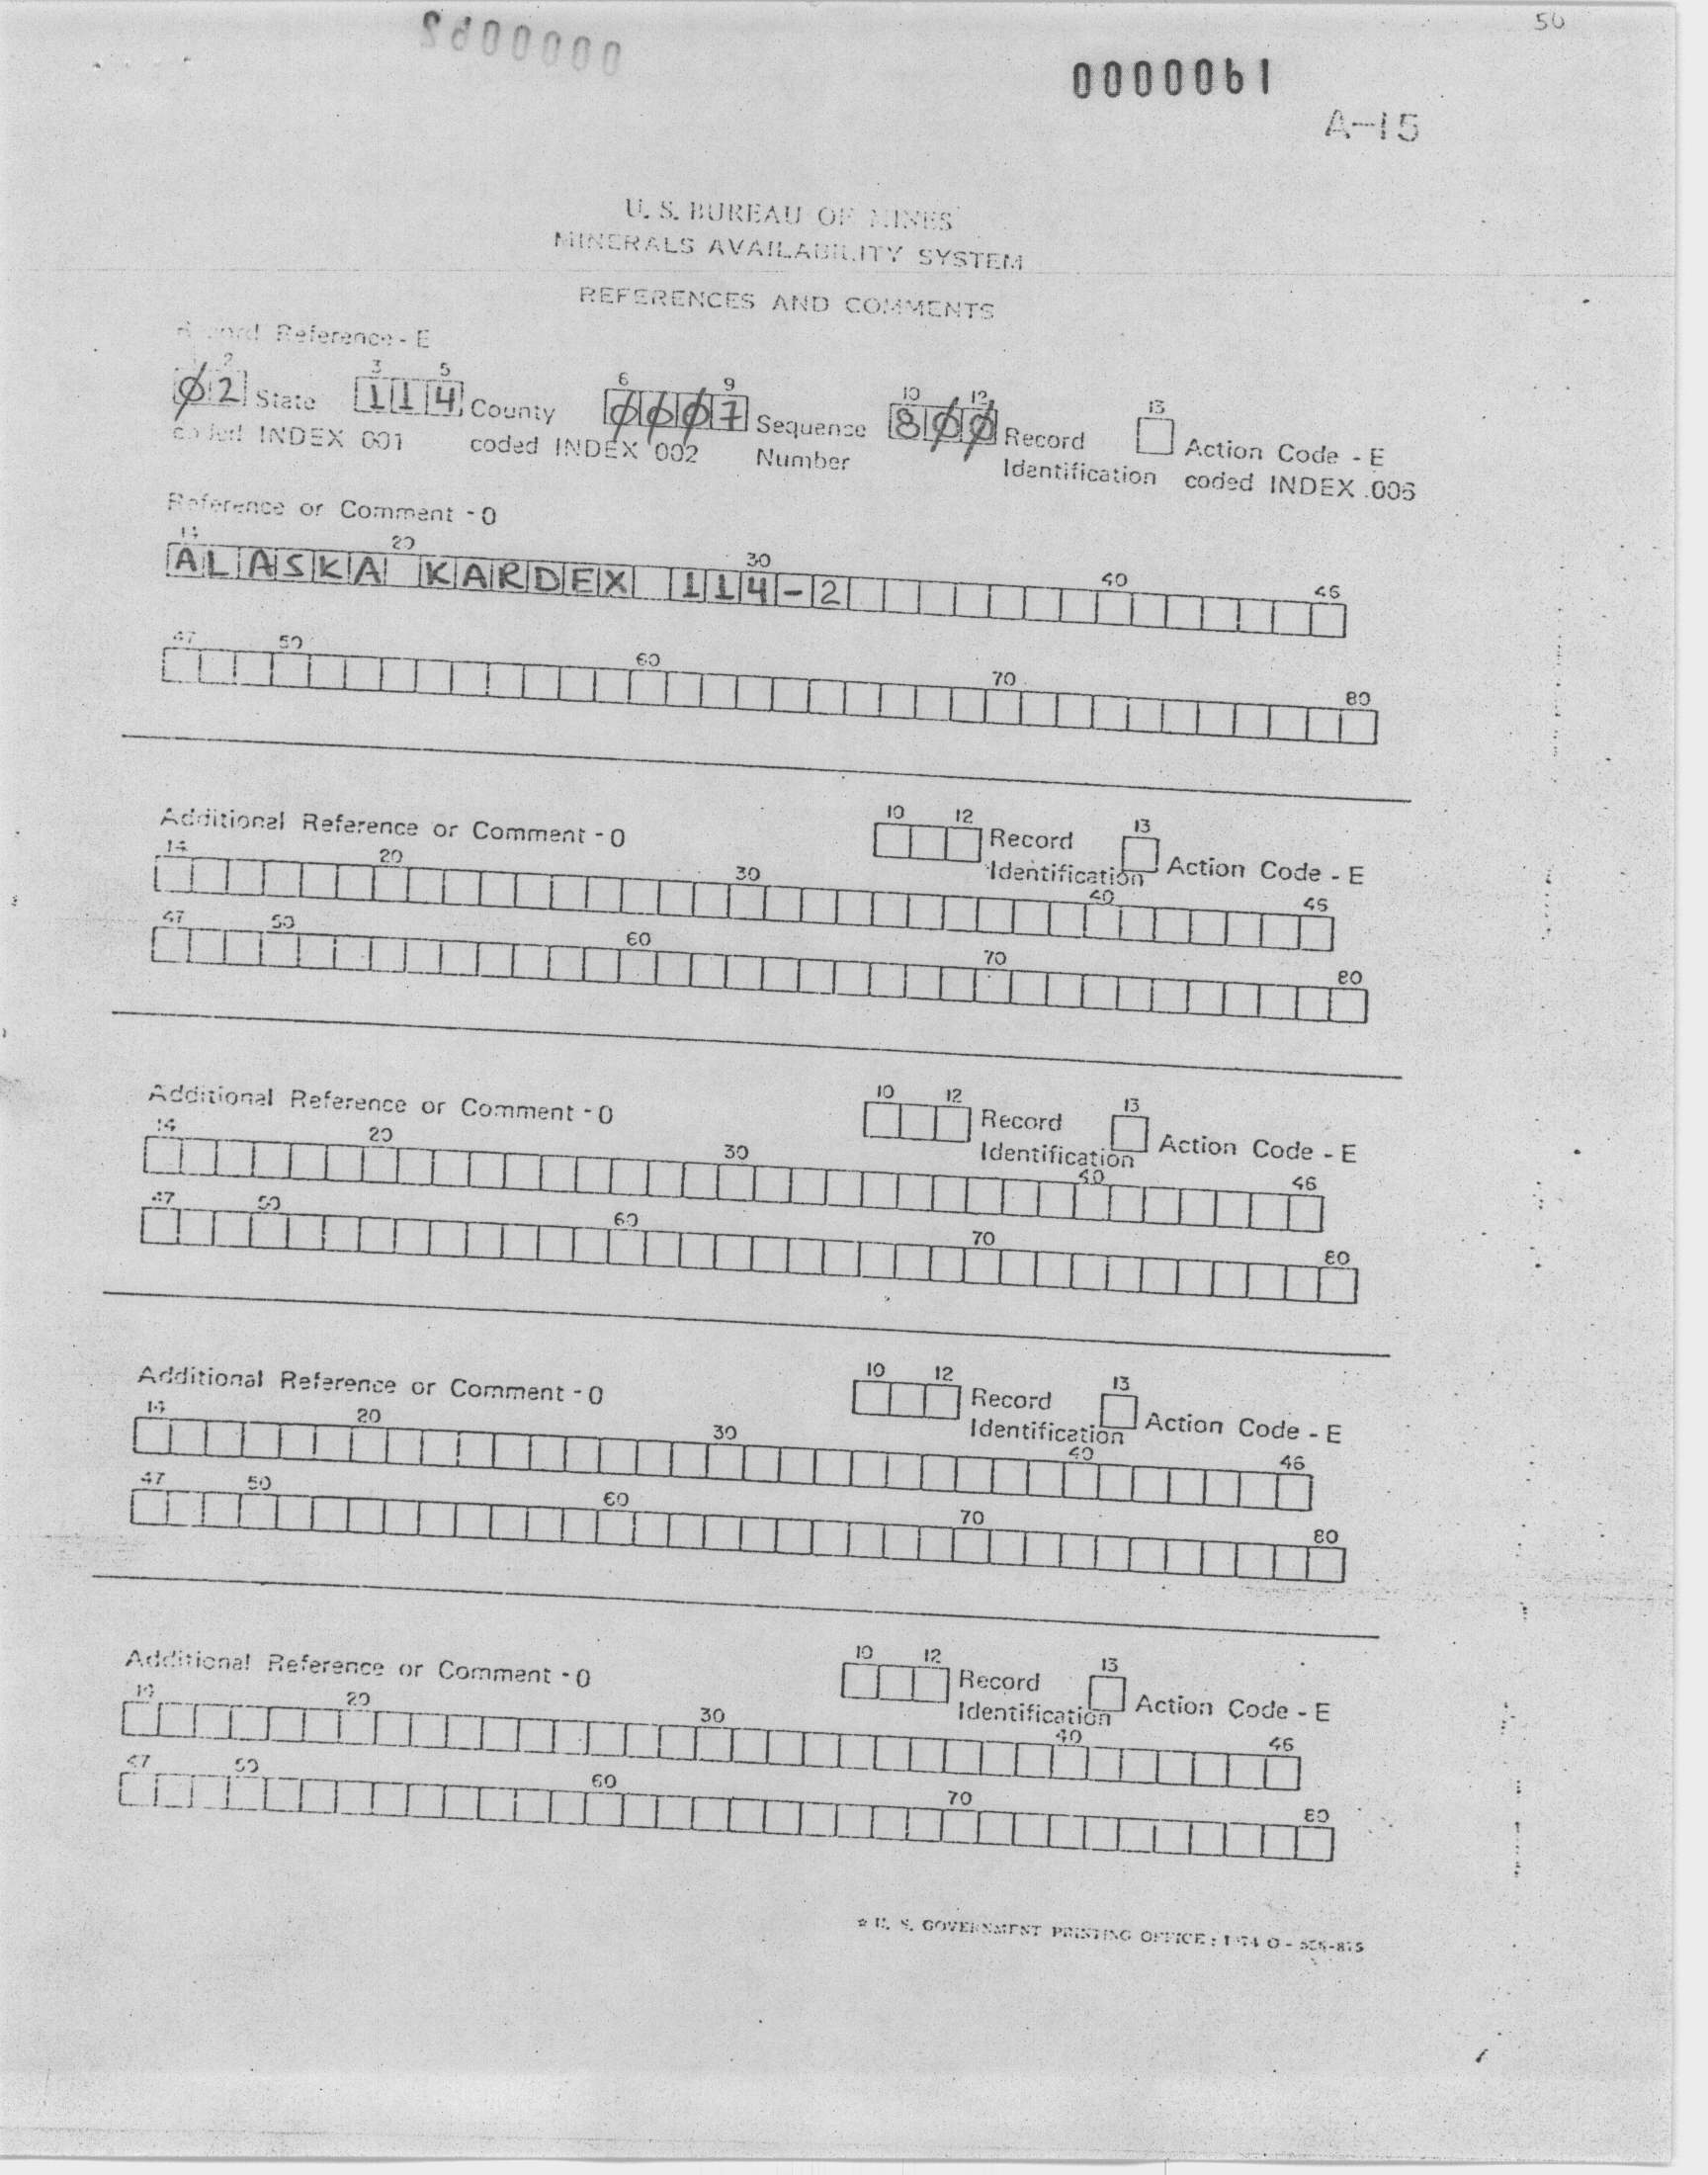 50
0000061
A-15
U. S. BUREAU OF MINES
MINERALS AVAILABILITY SYSTEM
REFERENCES AND COMMENTS
Record Reference - E
1 2 3 5 6 9 10 12 13
02 State 114 County 0007 Sequence Number 800 Record Identification Action Code - E
coded INDEX 001 coded INDEX 002 coded INDEX 006
Reference or Comment - O
14 20 30 40 46
ALASKA KARDEX 114-2
47 50 60 70 80
Additional Reference or Comment - O 10 12 Record Identification 13 Action Code - E
14 20 30 40 46
47 50 60 70 80
Additional Reference or Comment - O 10 12 Record Identification 13 Action Code - E
14 20 30 40 46
47 50 60 70 80
Additional Reference or Comment - O 10 12 Record Identification 13 Action Code - E
14 20 30 40 46
47 50 60 70 80
Additional Reference or Comment - O 10 12 Record Identification 13 Action Code - E
14 20 30 40 46
47 50 60 70 80
☆ U. S. GOVERNMENT PRINTING OFFICE : 1974 O -